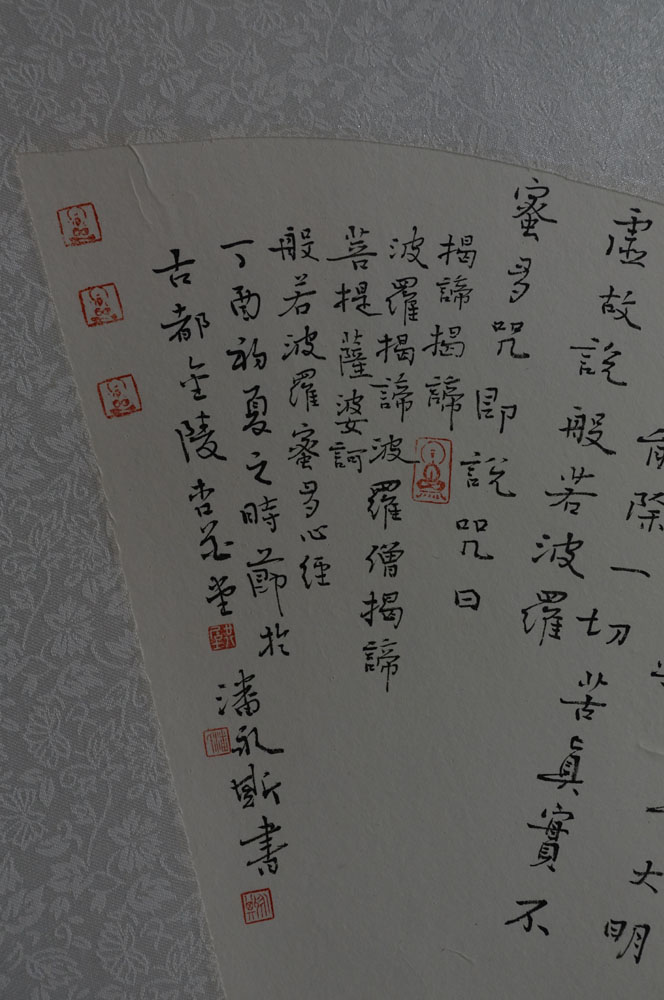 大明
除一切苦真實不
虛故說般若波羅
蜜多咒即說咒曰
揭諦揭諦
波羅揭諦波羅僧揭諦
菩提薩婆訶
般若波羅蜜多心經
丁酉初夏之時節於
古都金陵杏花堂
潘永斯書